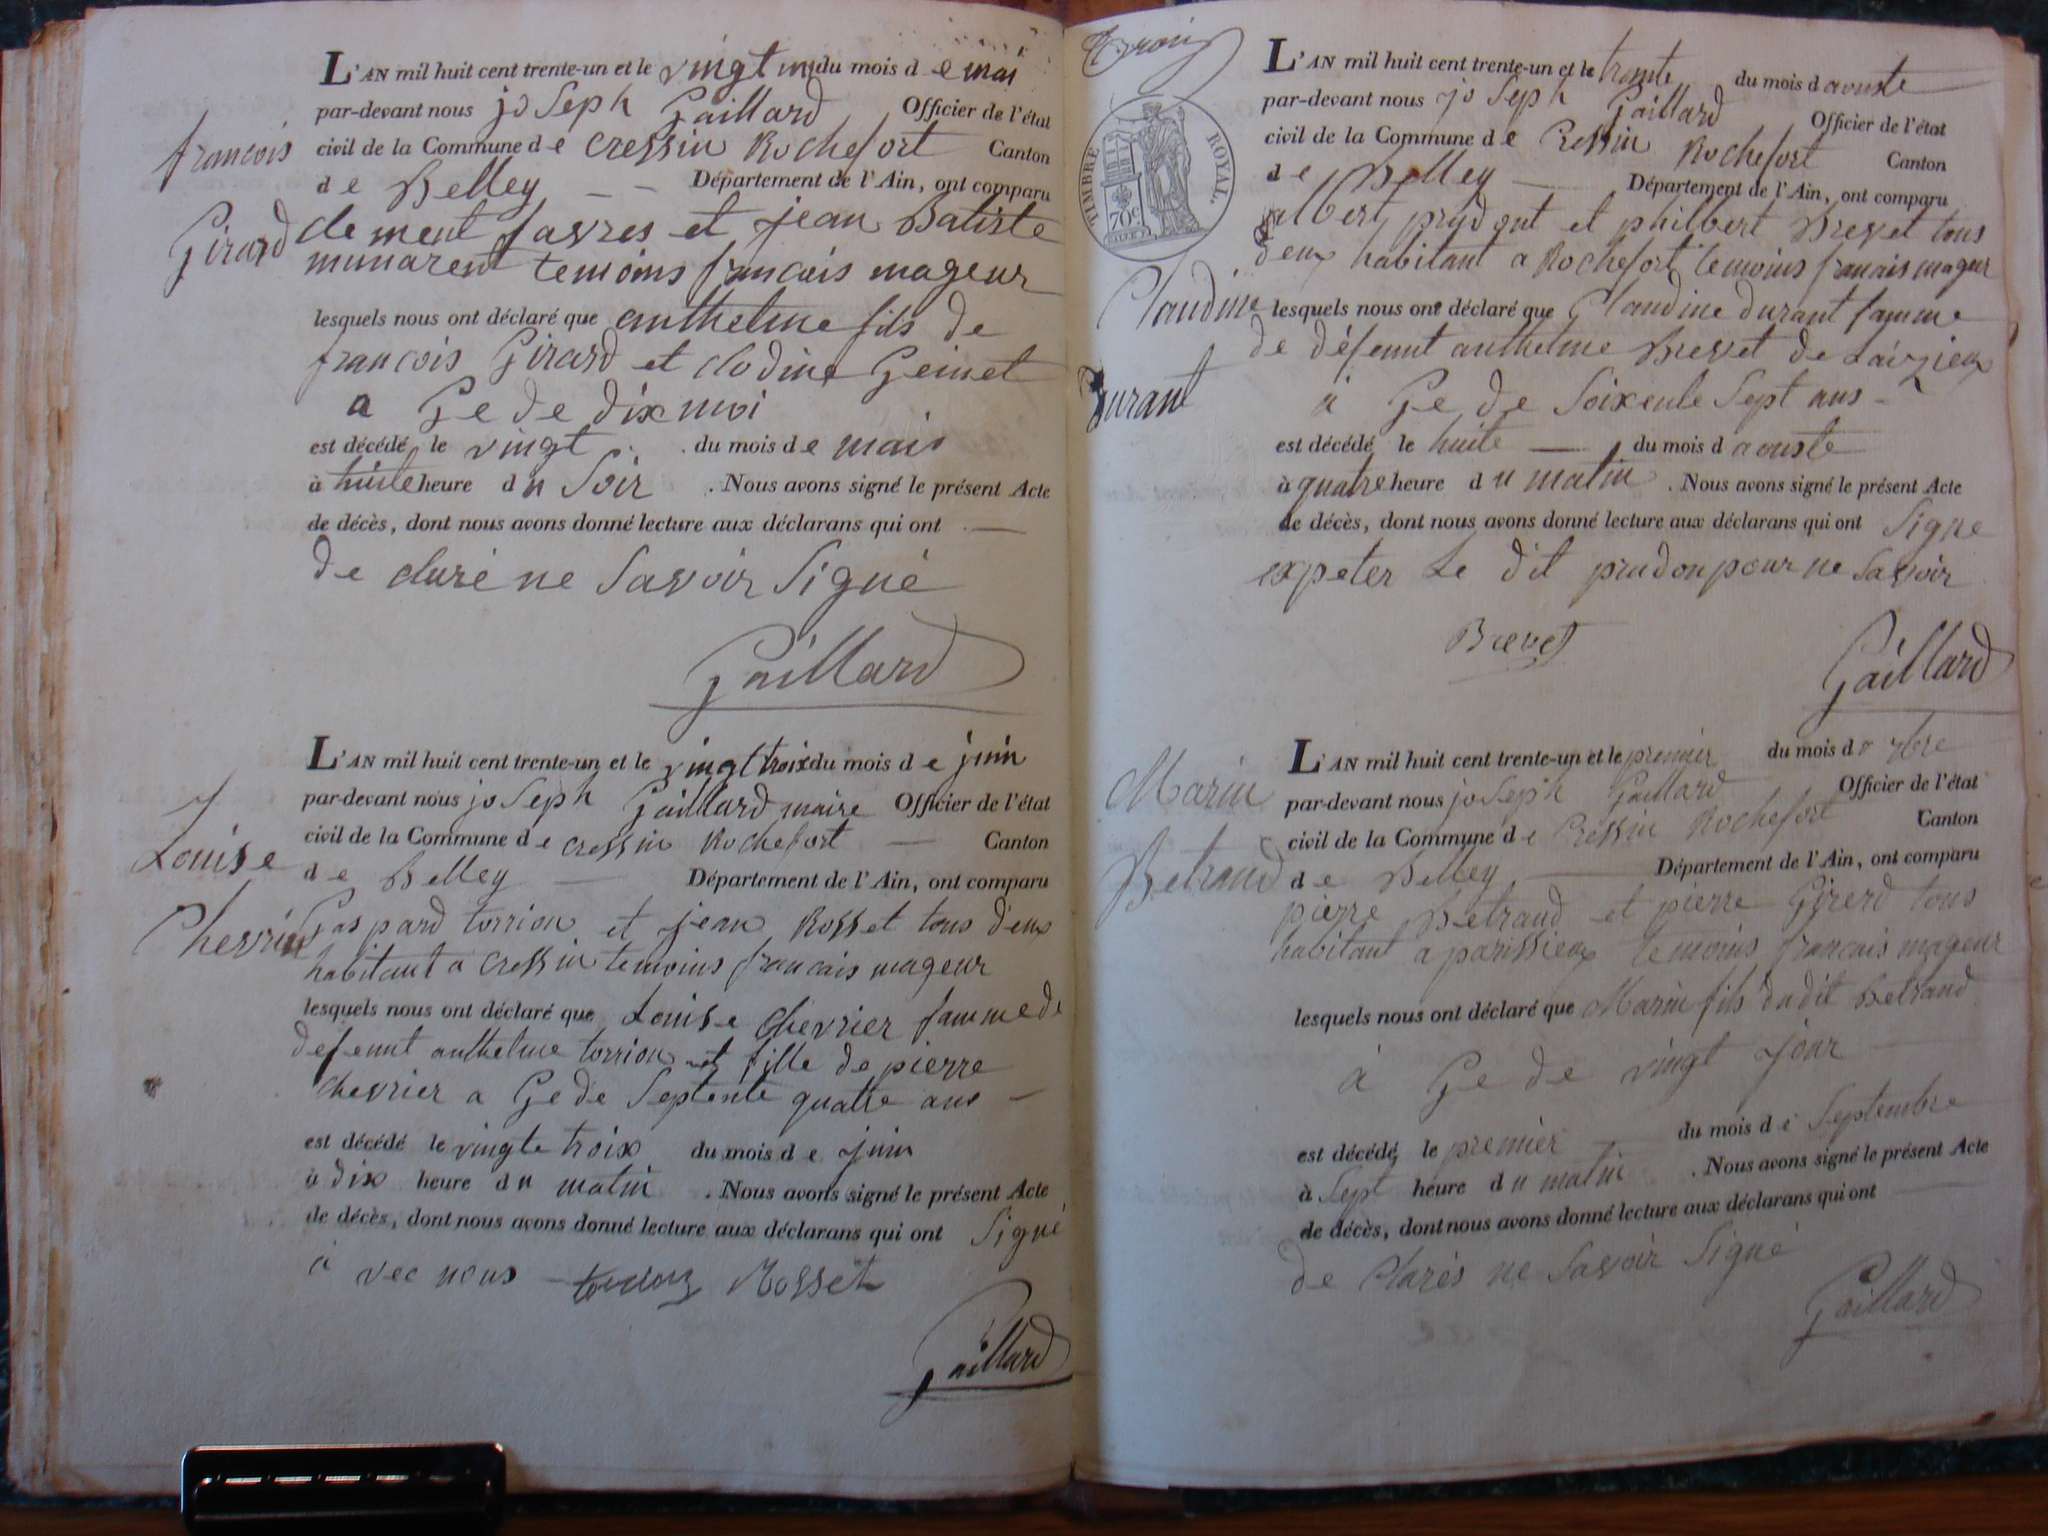 L'AN mil huit cent trente-un et le vingt un du mois de mai
par-devant nous joSeph Gaillard Officier de l'état
civil de la Commune de cressin Rochefort Canton
de Belley Département de l'Ain, ont comparu
francois
Girard
clement favres et jean Batiste
munarent temoins francais mageur
lesquels nous ont déclaré que anthelme fils de
francois Girard et clodine Geinet
a Ge de dix moi
est décédé le vingt du mois de mais
à huite heure du Soir . Nous avons signé le présent Acte
de décès, dont nous avons donné lecture aux déclarans qui ont
de claré ne Savoir Signé
Gaillard
L'AN mil huit cent trente-un et le vingt troix du mois de juin
par-devant nous joSeph Gaillard maire Officier de l'état
civil de la Commune de cressin Rochefort Canton
de Belley Département de l'Ain, ont comparu
Louise
Chevrier
Gaspard torrion et jean Rosset tous deux
habitant a cressin temoins francais mageur
lesquels nous ont déclaré que Louise chevrier famme de
defeunt anthelme torrion et fille de pierre
chevrier a Ge de Septente quatre ans
est décédé le vingte troix du mois de juin
à dix heure du matin . Nous avons signé le présent Acte
de décès, dont nous avons donné lecture aux déclarans qui ont Signé
a vec nous Rosset
Gaillard
TIMBRE ROYAL.
70c
L'AN mil huit cent trente-un et le trente du mois d avouste
par-devant nous joSeph Gaillard Officier de l'état
civil de la Commune de Cressin Rochefort Canton
de Belley Département de l'Ain, ont comparu
albert prudont et philbert Brevet tous
deux habitant a Rochefort temoins franais mageur
Claudine
Durant
lesquels nous ont déclaré que Claudine durant famme
de défeunt anthelme Brevet de
a Ge de Soixente Sept ans
est décédé le huite du mois d avouste
à quatre heure du matin . Nous avons signé le présent Acte
de décès, dont nous avons donné lecture aux déclarans qui ont Signe
expeter Le dit prudon pour ne Savoir
Brevet
Gaillard
L'AN mil huit cent trente-un et le premier du mois de 7bre
par-devant nous joSeph Gaillard Officier de l'état
civil de la Commune de Cressin Rochefort Canton
de Belley Département de l'Ain, ont comparu
Marin
Betrand
pierre Betrand et pierre Girerd tous
habitant a parissieux temoins francais mageur
lesquels nous ont déclaré que Marin fils du dit Betrand
a Ge de vingt jour
est décédé le premier du mois de Septembre
à Sept heure du matin . Nous avons signé le présent Acte
de décès, dont nous avons donné lecture aux déclarans qui ont
de Clarés ne Savoir Signé
Gaillard